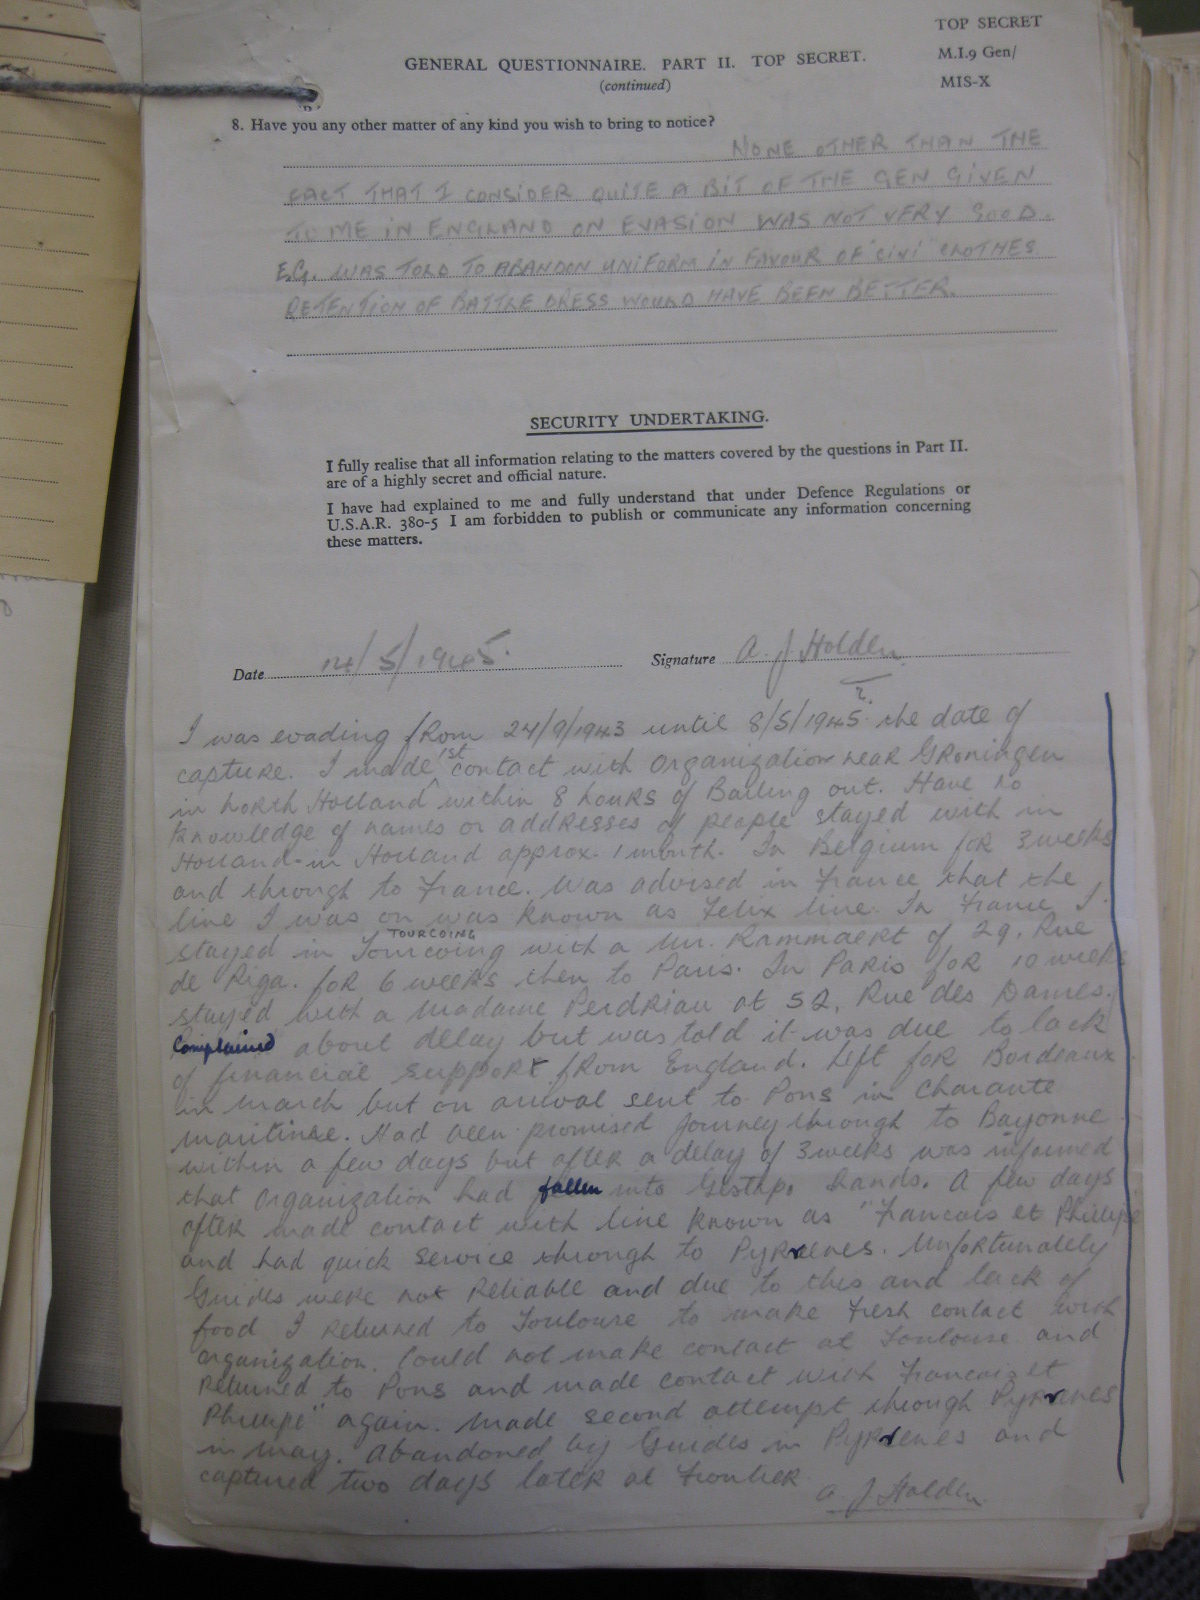 TOP SECRET
GENERAL QUESTIONNAIRE. PART II. TOP SECRET.
M.I.9 Gen/
(continued)
MIS-X
8. Have you any other matter of any kind you wish to bring to notice?
NONE OTHER THAN THE
FACT THAT I CONSIDER QUITE A BIT OF THE GEN GIVEN
TO ME IN ENGLAND ON EVASION WAS NOT VERY GOOD.
E.G. WAS TOLD TO ABANDON UNIFORM IN FAVOUR OF "CIVI" CLOTHES.
RETENTION OF BATTLE DRESS WOULD HAVE BEEN BETTER.
SECURITY UNDERTAKING.
I fully realise that all information relating to the matters covered by the questions in Part II.
are of a highly secret and official nature.
I have had explained to me and fully understand that under Defence Regulations or
U.S.A.R. 380-5 I am forbidden to publish or communicate any information concerning
these matters.
Date 14/5/1945. Signature A. J Holden
?
I was evading from 24/9/1943 until 8/5/1945 the date of
capture. I made 1st contact with organization near Groningen
in North Holland within 8 hours of Bailing out. Have no
knowledge of names or addresses of people stayed with in
Holland - in Holland approx. 1 month. In Belgium for 3 weeks
and through to France. Was advised in France that the
line I was on was known as Felix line. In France I
TOURCOING
stayed in Tourcoing with a Mr. Rammaert of 29. Rue
de Riga. for 6 weeks then to Paris. In Paris for 10 weeks
stayed with a Madame Perdriau at 52, Rue des Dames.
Complained about delay but was told it was due to lack
of financial support from England. Left for Bordeaux
in March but on arival sent to Pons in Charante
Maritime. Had been promised journey through to Bayonne
within a few days but after a delay of 3 weeks was informed
that organization had fallen into Gestapo hands. A few days
after made contact with line known as "Francois et Phillipe
and had quick service through to Pyrenees. Unfortunately
Guides were not reliable and due to this and lack of
food I returned to Toulouse to make fresh contact with
organization. Could not make contact at Toulouse and
returned to Pons and made contact with Francois et
Phillipe" again. Made second attempt through Pyrenees
in May. Abandoned by Guides in Pyrenees and
captured two days later at Frontier.
A J Holden.